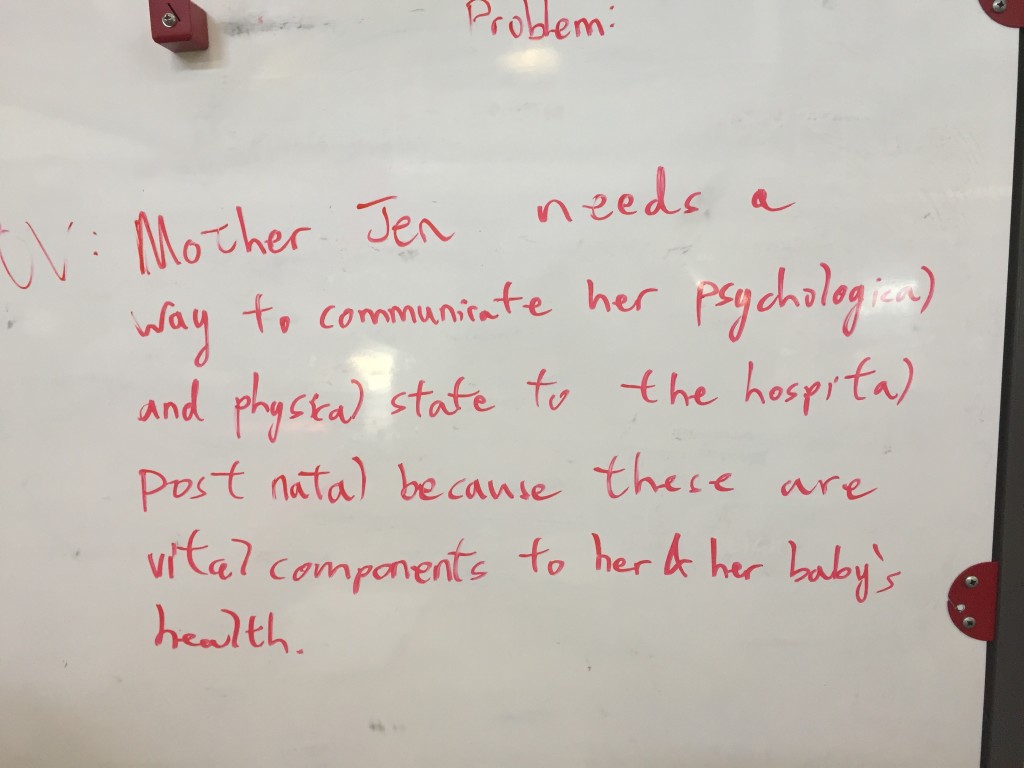 Problem:
OV: Mother Jen needs a
way to communicate her psychological
and physical state to the hospital
post natal because these are
vital components to her & her baby's
health.